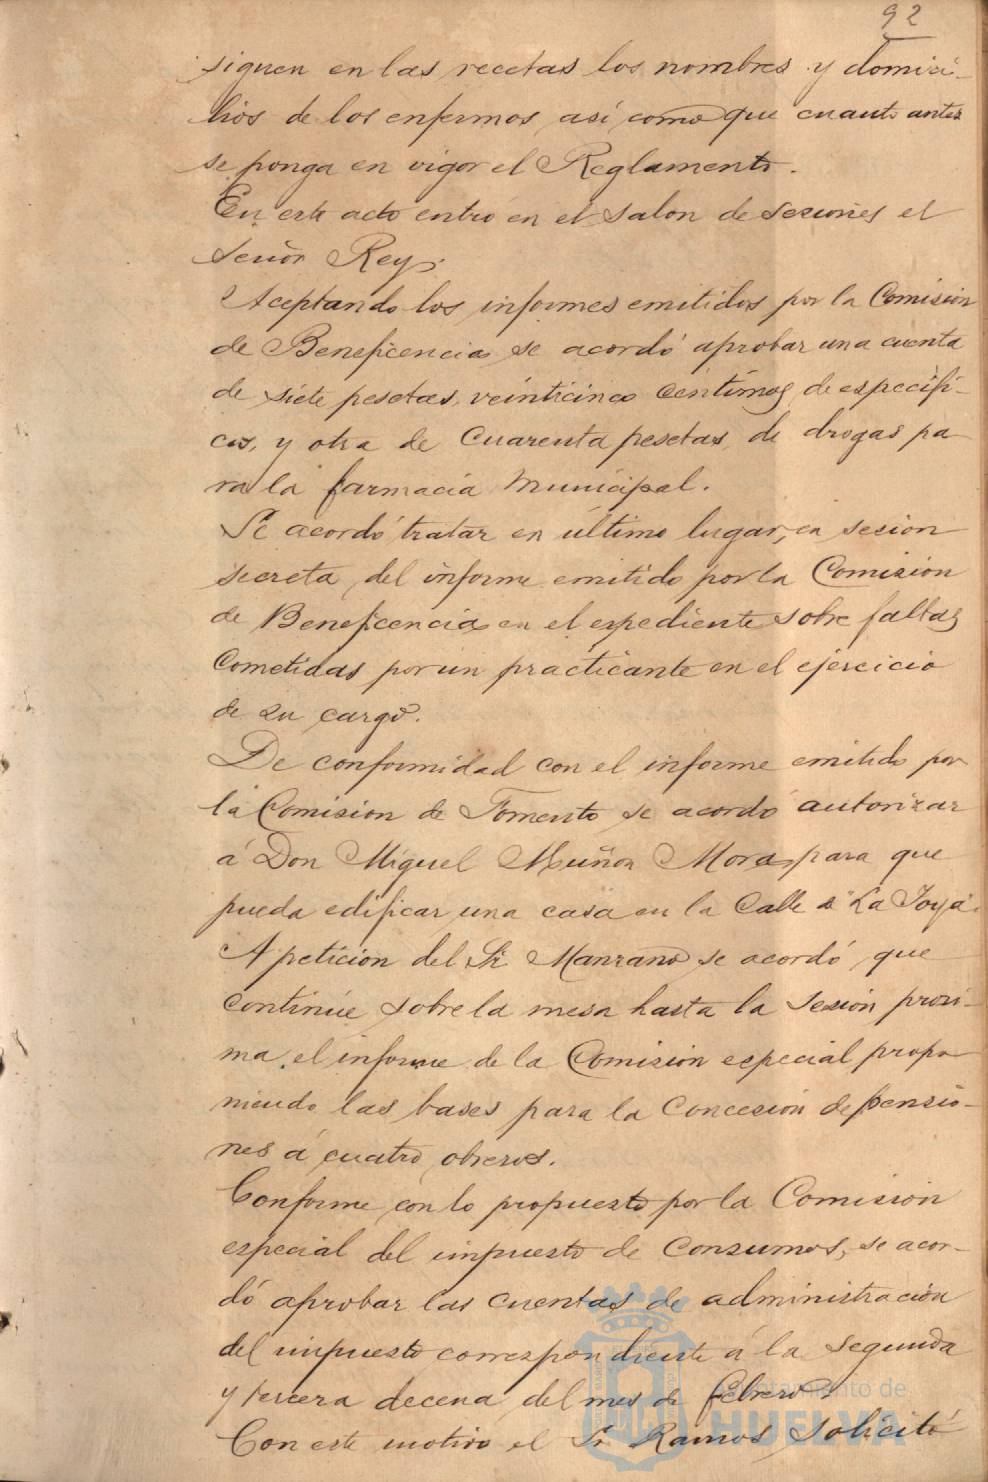 92
siguen en las recetas los nombres y domici-
lios de los enfermos así como que cuanto antes
se ponga en vigor el Reglamento.
En este acto entró en el salon de sesiones el
Señor Rey.
Aceptando los informes emitidos por la Comision
de Beneficencia se acordó aprobar una cuenta
de siete pesetas veinticinco centimos de especifi-
cos, y otra de cuarenta pesetas de drogas pa
ra la farmacia Municipal.
Se acordó tratar en último lugar, en sesion
secreta del informe emitido por la Comision
de Beneficencia en el espediente sobre faltas
cometidas por un practicante en el ejercicio
de su cargo.
De conformidad con el informe emitido por
la Comision de Fomento se acordó autorizar
á Don Miguel Muñoz Mora para que
pueda edificar una casa en la Calle a "La Joya".
A peticion del Sr Manzano se acordó que
continúe sobre la mesa hasta la sesión proxi-
ma el informe de la Comision especial propo
niendo las bases para la concesion de pensio-
nes á cuatro obreros.
Conforme con lo propuesto por la Comision
especial del impuesto de Consumos, se acor-
dó aprobar las cuentas de administracion
del impuesto correspondiente á la segunda
y tercera decena del mes de febrero.
Con este motivo el Sr Ramos solicitó
Ayuntamiento de
HUELVA